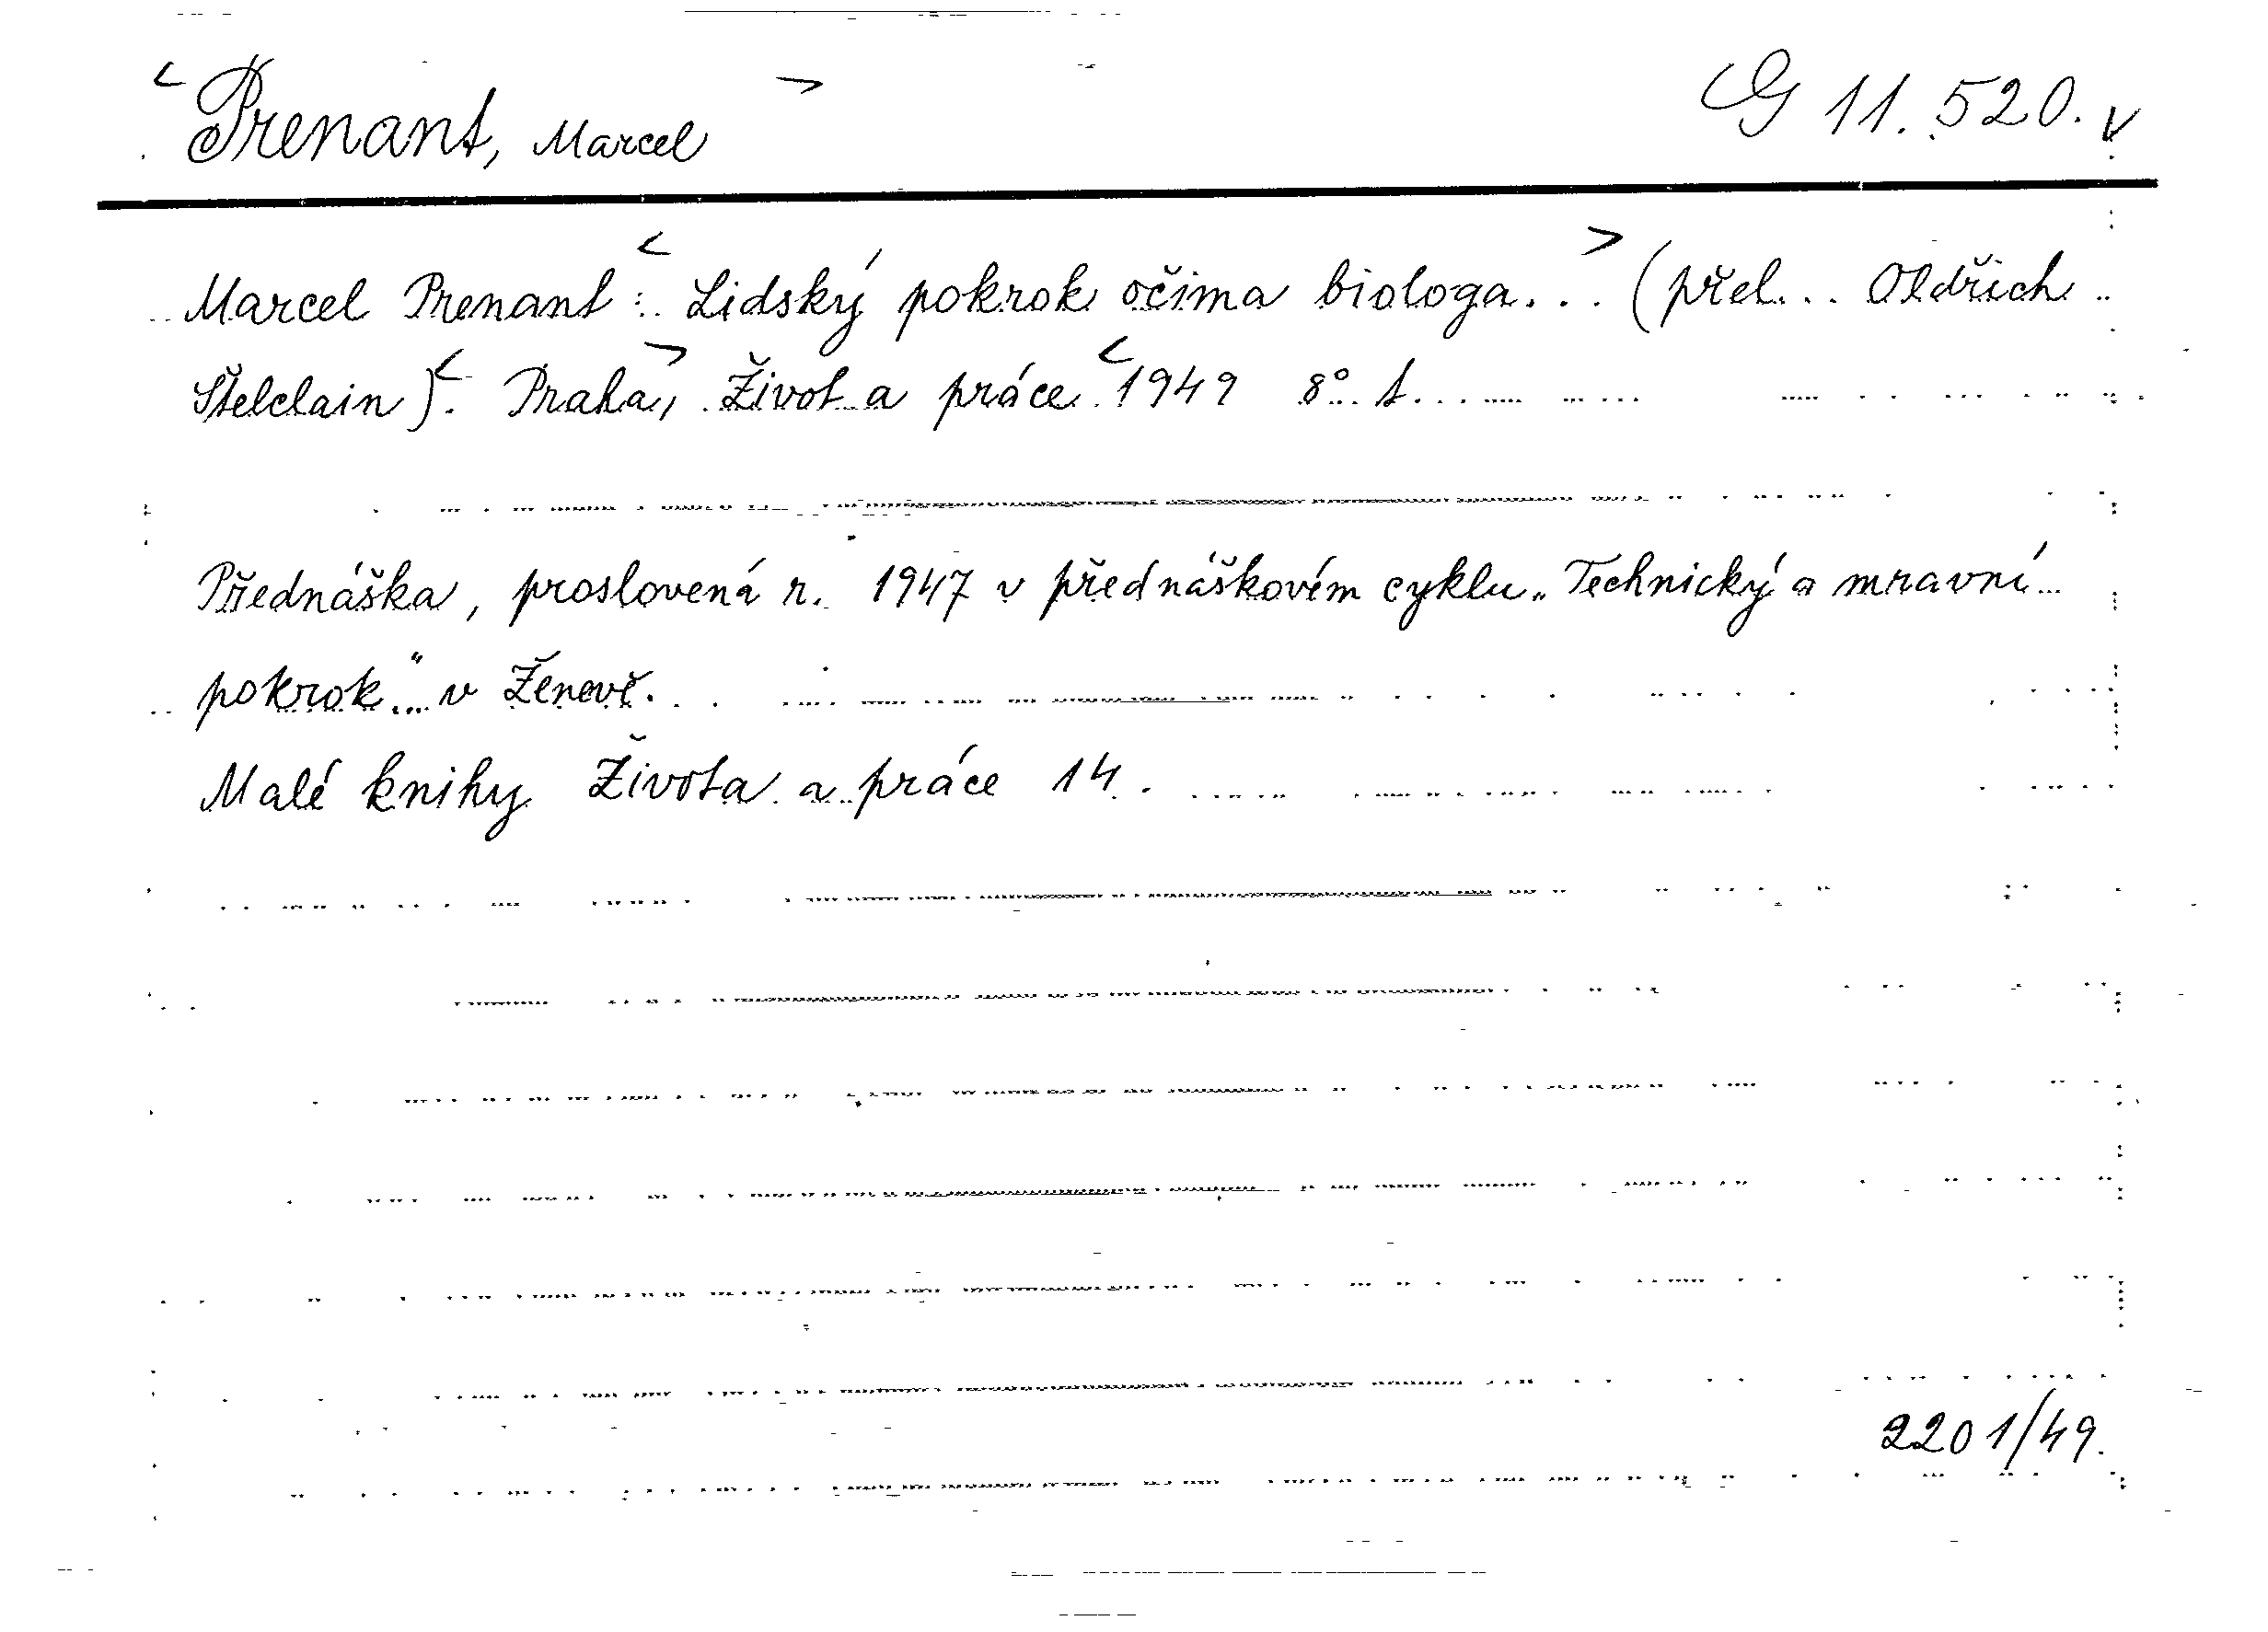 < Prenant, Marcel > G 11.520. v
Marcel Prenant: < Lidský pokrok očima biologa... > (přel... Oldřich
Štelclain). < Praha, > Život a práce < 1949 8° s.
Přednáška, proslovená r. 1947 v přednáškovém cyklu „Technický a mravní
pokrok“ v Ženevě.
Malé knihy Života a práce 14.
2201/49.